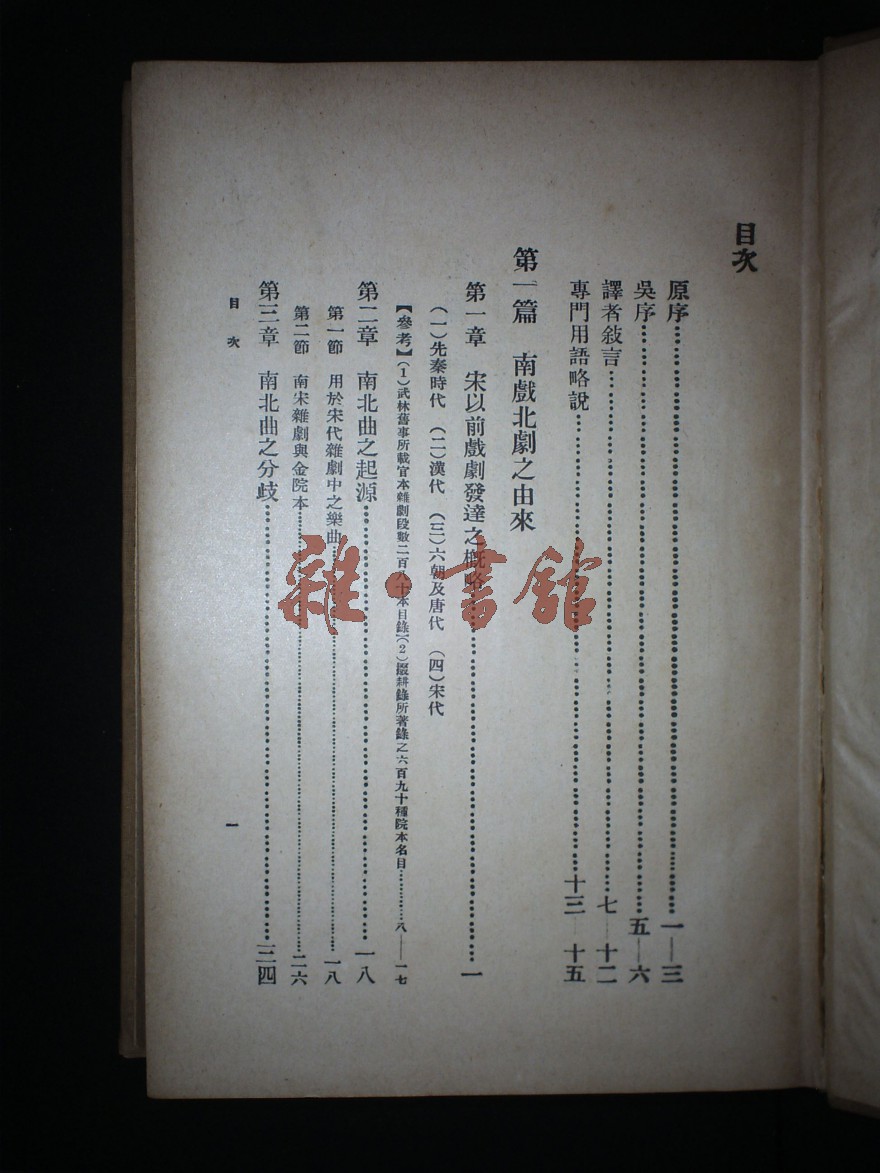 目次
原序……一—三
吳序……五—六
譯者敍言……七 十二
專門用語略說……十三 十五
第一篇 南戲北劇之由來
第一章 宋以前戲劇發達之概略……一
(一)先秦時代 (二)漢代 (三)六朝及唐代 (四)宋代
【參考】(1)武林舊事所載官本雜劇段數二百八十本目錄(2)掇耕錄所著錄之六百九十種院本名目……八——一七
第二章 南北曲之起源……一八
第一節 用於宋代雜劇中之樂曲……一八
第二節 南宋雜劇與金院本……二六
第三章 南北曲之分歧……三四
目次
一
雜·書館